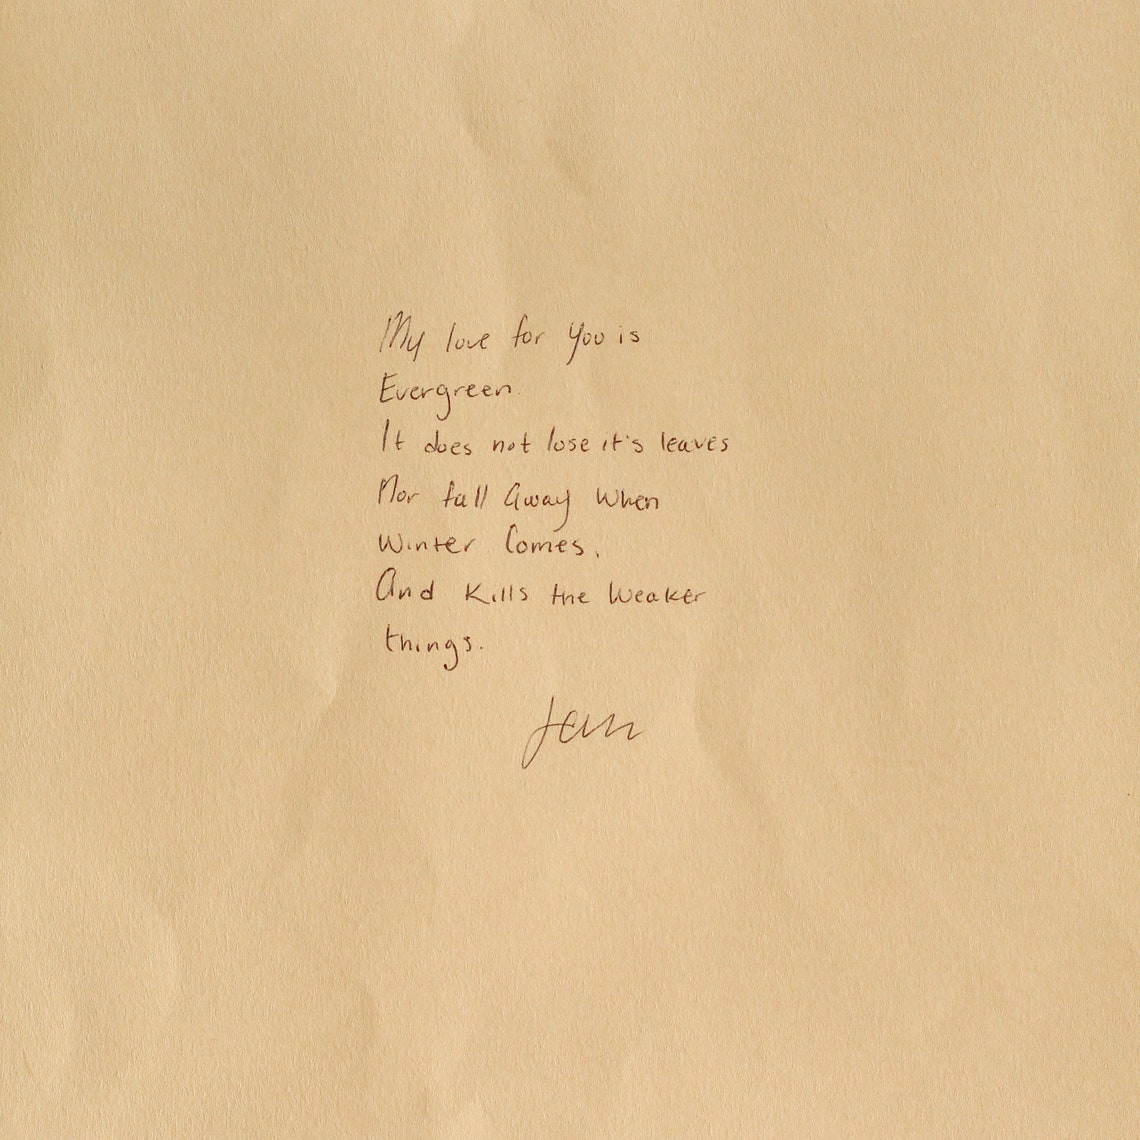 My love for you is
Evergreen.
It does not lose it's leaves
Nor fall away when
Winter Comes,
And Kills the Weaker
things.